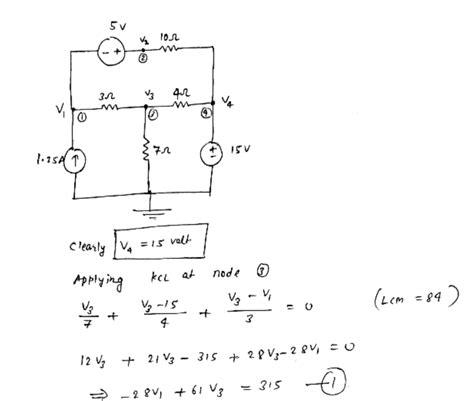 5V
V₂ 10Ω
- +
②
3Ω V₃ 4Ω
V₁ ① ③ ④ V₄
1.25A ↑ 7Ω + - 15V
Clearly V₄ = 15 volt
Applying KCL at node ③
V₃/7 + (V₃-15)/4 + (V₃-V₁)/3 = 0 (LCM = 84)
12V₃ + 21V₃ - 315 + 28V₃ - 28V₁ = 0
⇒ -28V₁ + 61V₃ = 315 —①